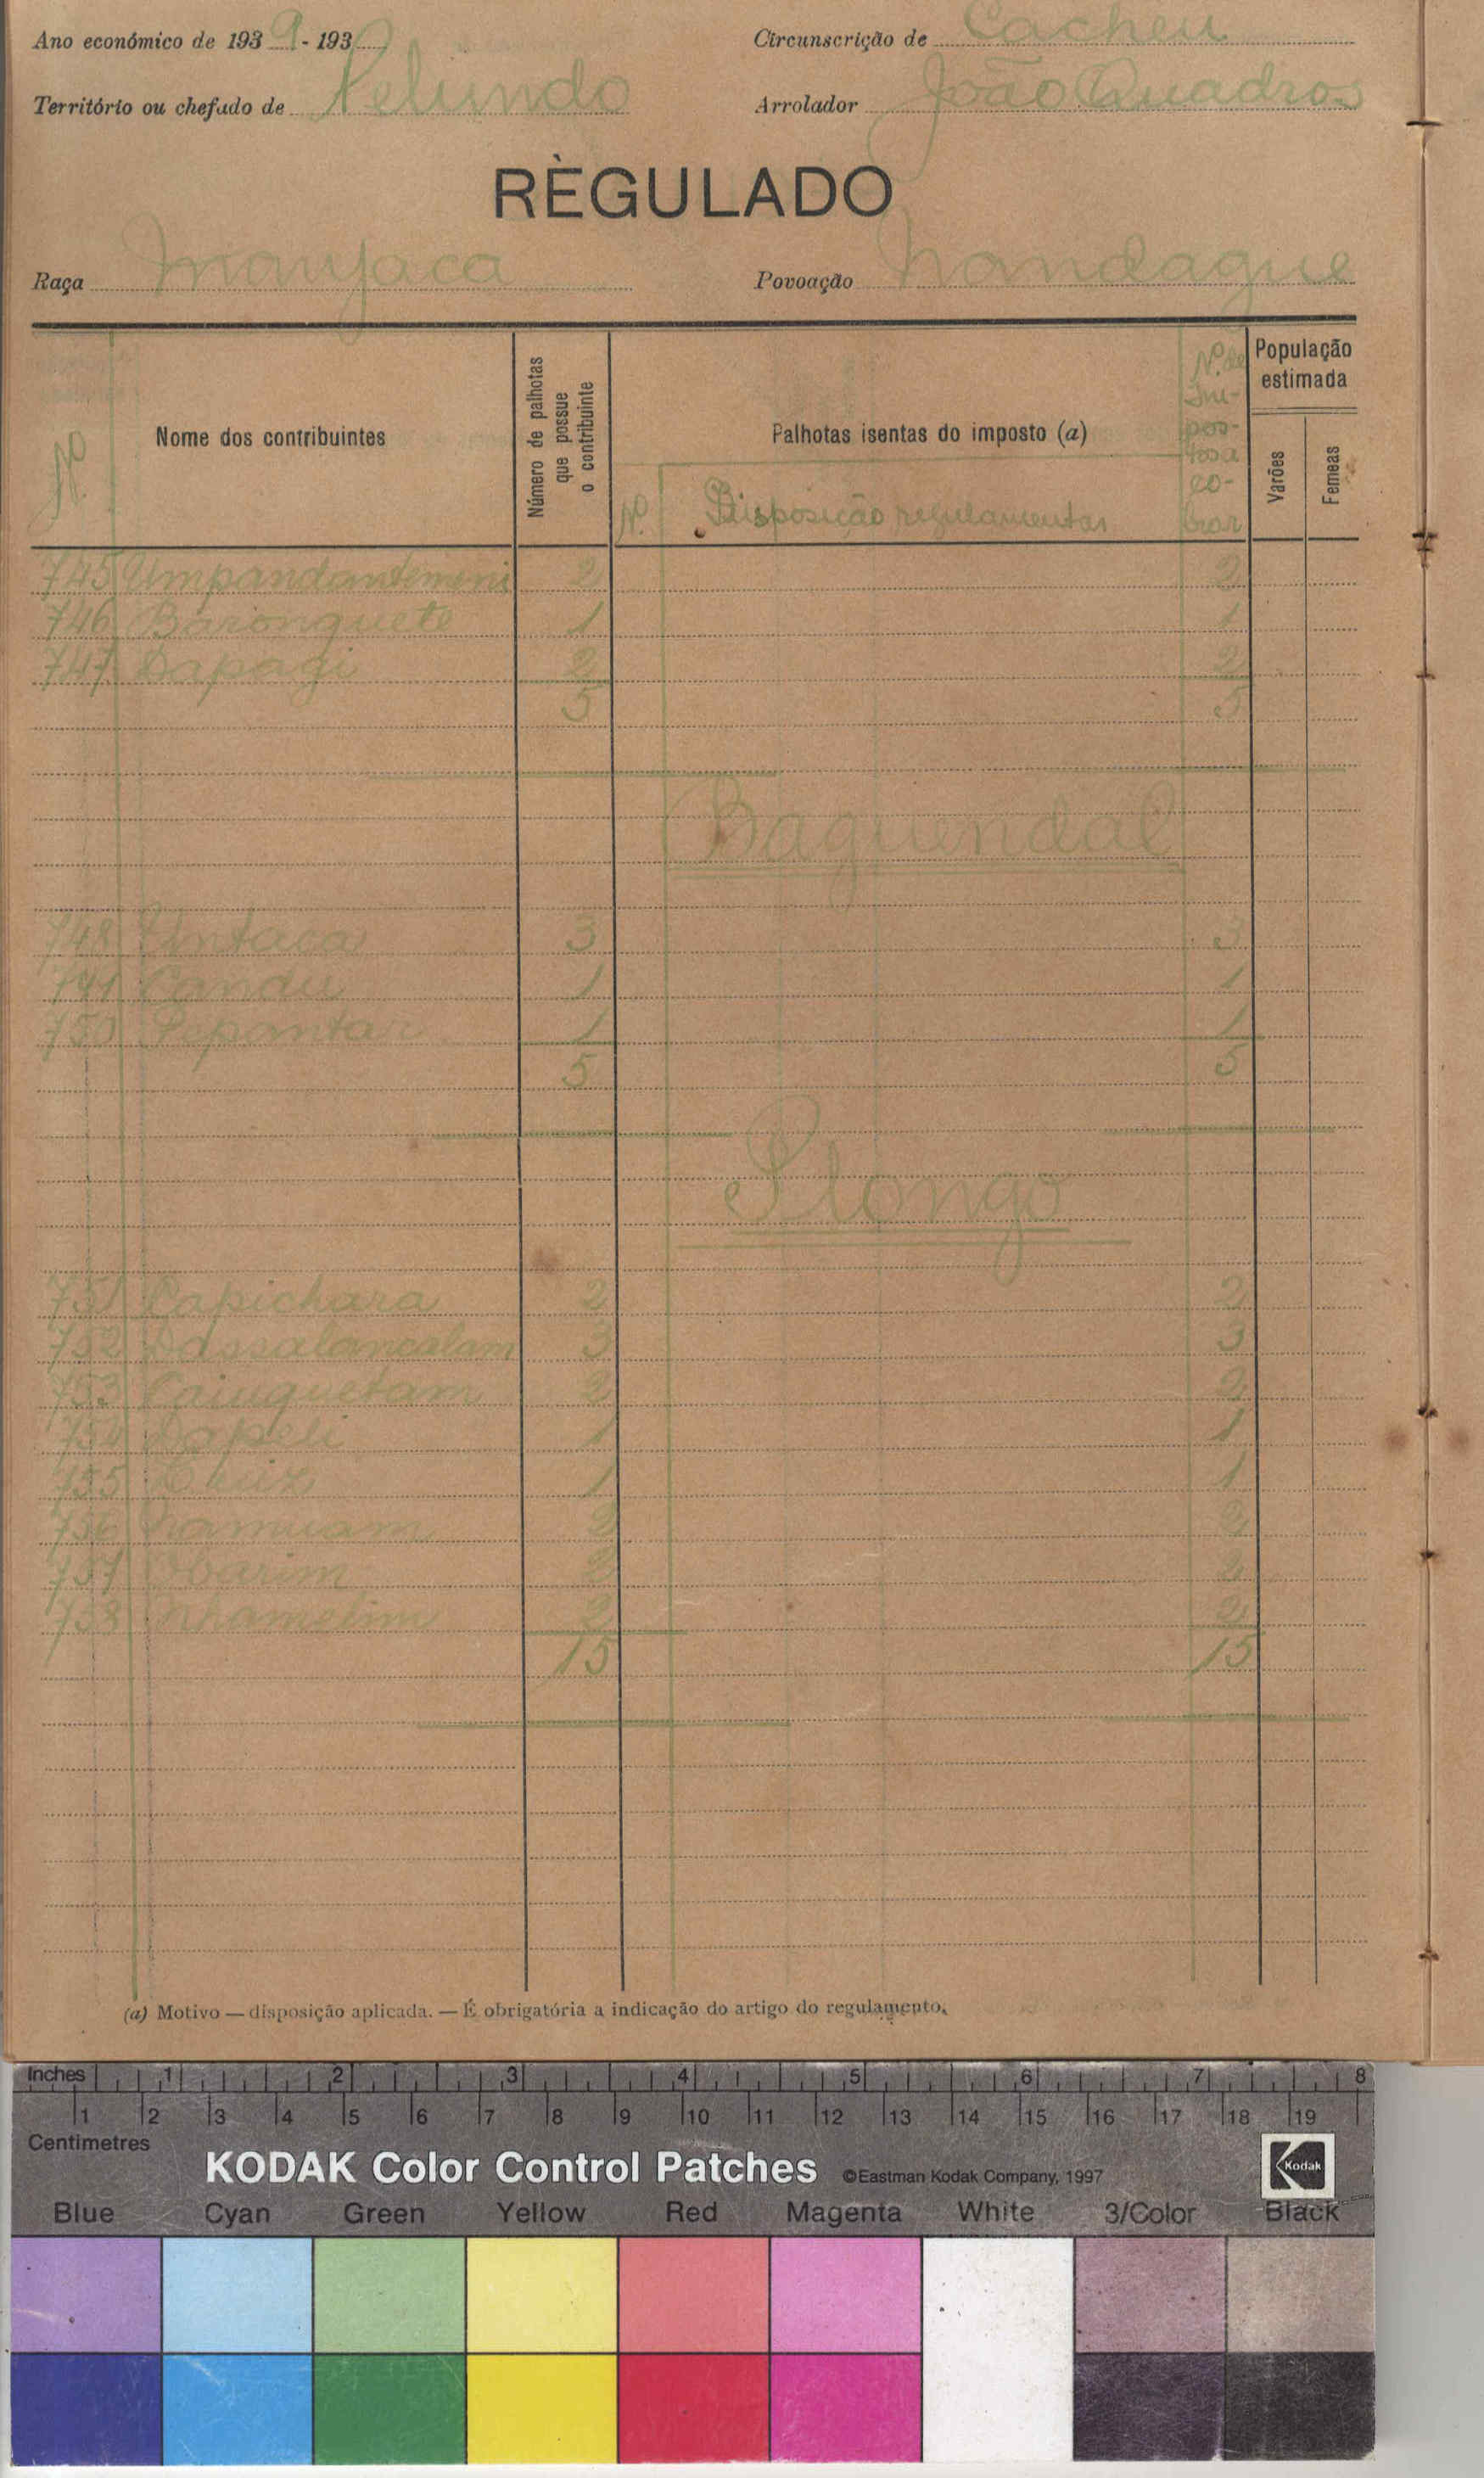 Ano económico de 1939 - 193
Circunscrição de Cacheu
Território ou chefado de Pelundo
Arrolador João Quadros
RÈGULADO
Raça Manjaca
Povoação Nandague
Nº
Nome dos contribuintes
Número de palhotas que possue o contribuinte
Palhotas isentas do imposto (a)
Nº
Disposição regulamentar
Nº de Im-
pos-
tos a
co-
brar
População estimada
Varões
Femeas
745 Umpandantemeni 2 2
746 Baronquete 1 1
747 Dapagi 2 2
5 5
Baguendal
748 Untaca 3 3
749 Candu 1 1
750 Pepantar 1 1
5 5
Plongo
751 Capichara 2 2
752 Dassalancalam 3 3
753 Cainguetam 2 2
754 Dapeli 1 1
755 1 1
756 Namuam 2 2
757 Obarim 2 2
758 Nhamelim 2 2
15 15
(a) Motivo — disposição aplicada. — É obrigatória a indicação do artigo do regulamento.
Inches 1 2 3 4 5 6 7 8
1 2 3 4 5 6 7 8 9 10 11 12 13 14 15 16 17 18 19
Centimetres
KODAK Color Control Patches ©Eastman Kodak Company, 1997 Kodak
Blue Cyan Green Yellow Red Magenta White 3/Color Black